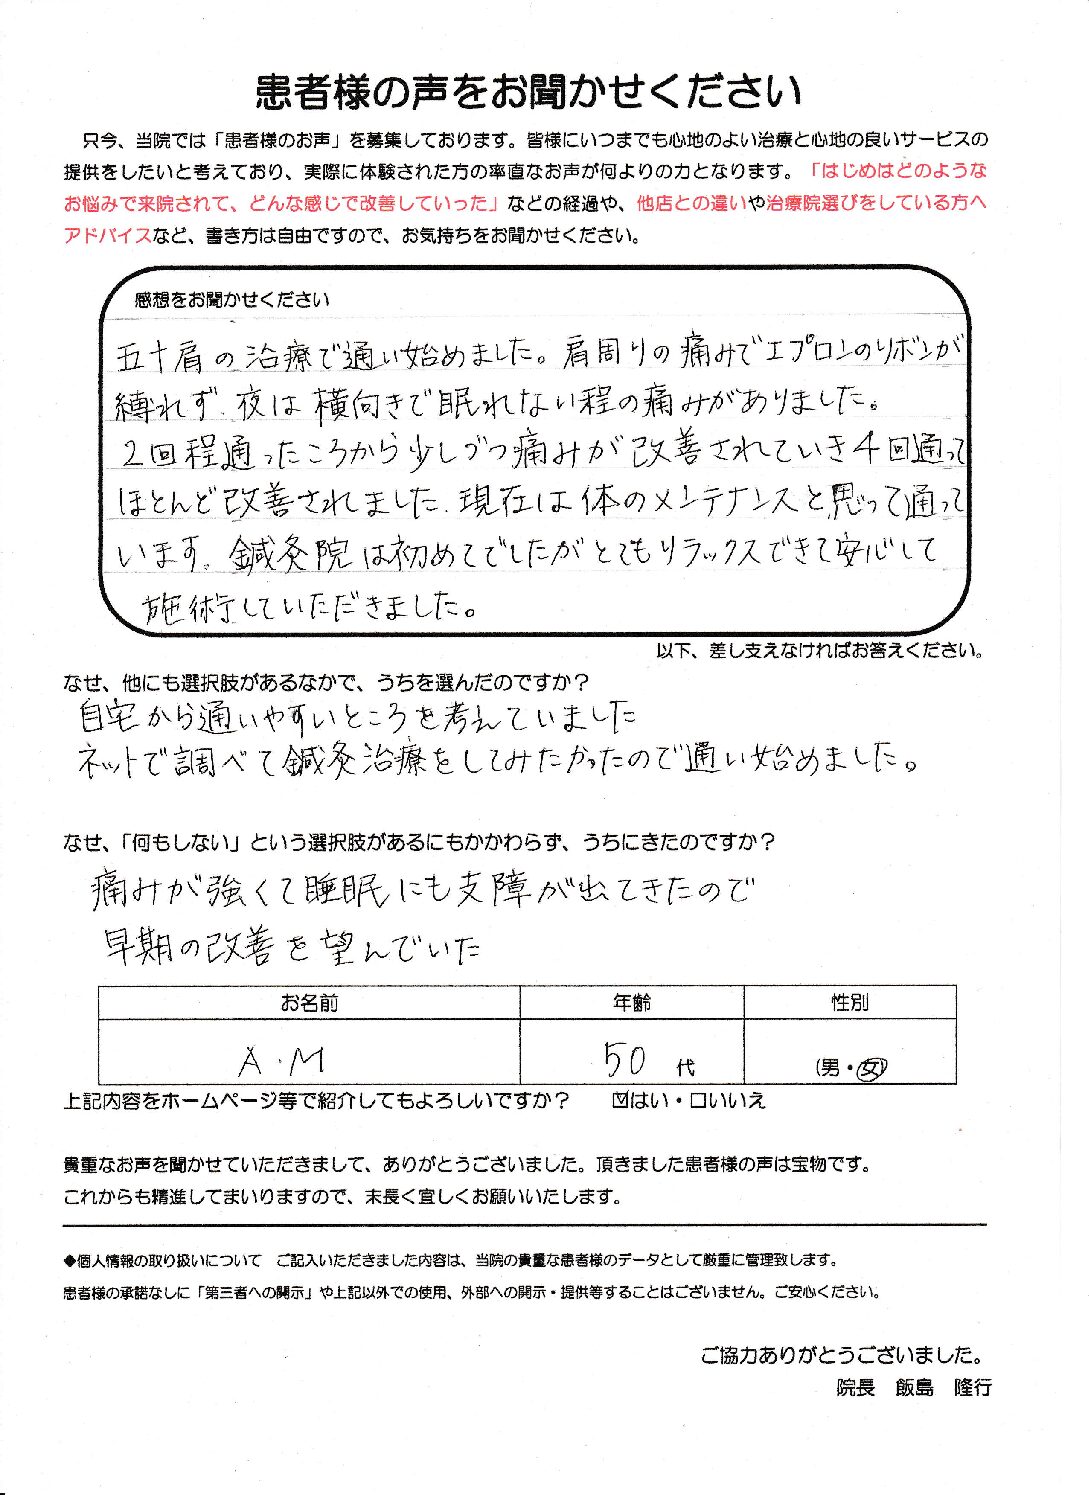 患者様の声をお聞かせください
只今、当院では「患者様のお声」を募集しております。皆様にいつまでも心地のよい治療と心地の良いサービスの
提供をしたいと考えており、実際に体験された方の率直なお声が何よりの力となります。「はじめはどのような
お悩みで来院されて、どんな感じで改善していった」などの経過や、他店との違いや治療院選びをしている方へ
アドバイスなど、書き方は自由ですので、お気持ちをお聞かせください。
感想をお聞かせください
五十肩の治療で通い始めました。肩周りの痛みでエプロンのリボンが
縛れず、夜は横向きで眠れない程の痛みがありました。
2回程通ったころから少しづつ痛みが改善されていき4回通って
ほとんど改善されました。現在は体のメンテナンスと思って通って
います。鍼灸院は初めてでしたがとてもリラックスできて安心して
施術していただきました。
以下、差し支えなければお答えください。
なぜ、他にも選択肢があるなかで、うちを選んだのですか？
自宅から通いやすいところを考えていました
ネットで調べて鍼灸治療をしてみたかったので通い始めました。
なぜ、「何もしない」という選択肢があるにもかかわらず、うちにきたのですか？
痛みが強くて睡眠にも支障が出てきたので
早期の改善を望んでいた
お名前 年齢 性別
A.M 50代 (男・女)
上記内容をホームページ等で紹介してもよろしいですか？ ☑はい・□いいえ
貴重なお声を聞かせていただきまして、ありがとうございました。頂きました患者様の声は宝物です。
これからも精進してまいりますので、末長く宜しくお願いいたします。
◆個人情報の取り扱いについて ご記入いただきました内容は、当院の貴重な患者様のデータとして厳重に管理致します。
患者様の承諾なしに「第三者への開示」や上記以外での使用、外部への開示・提供等することはございません。ご安心ください。
ご協力ありがとうございました。
院長 飯島 隆行